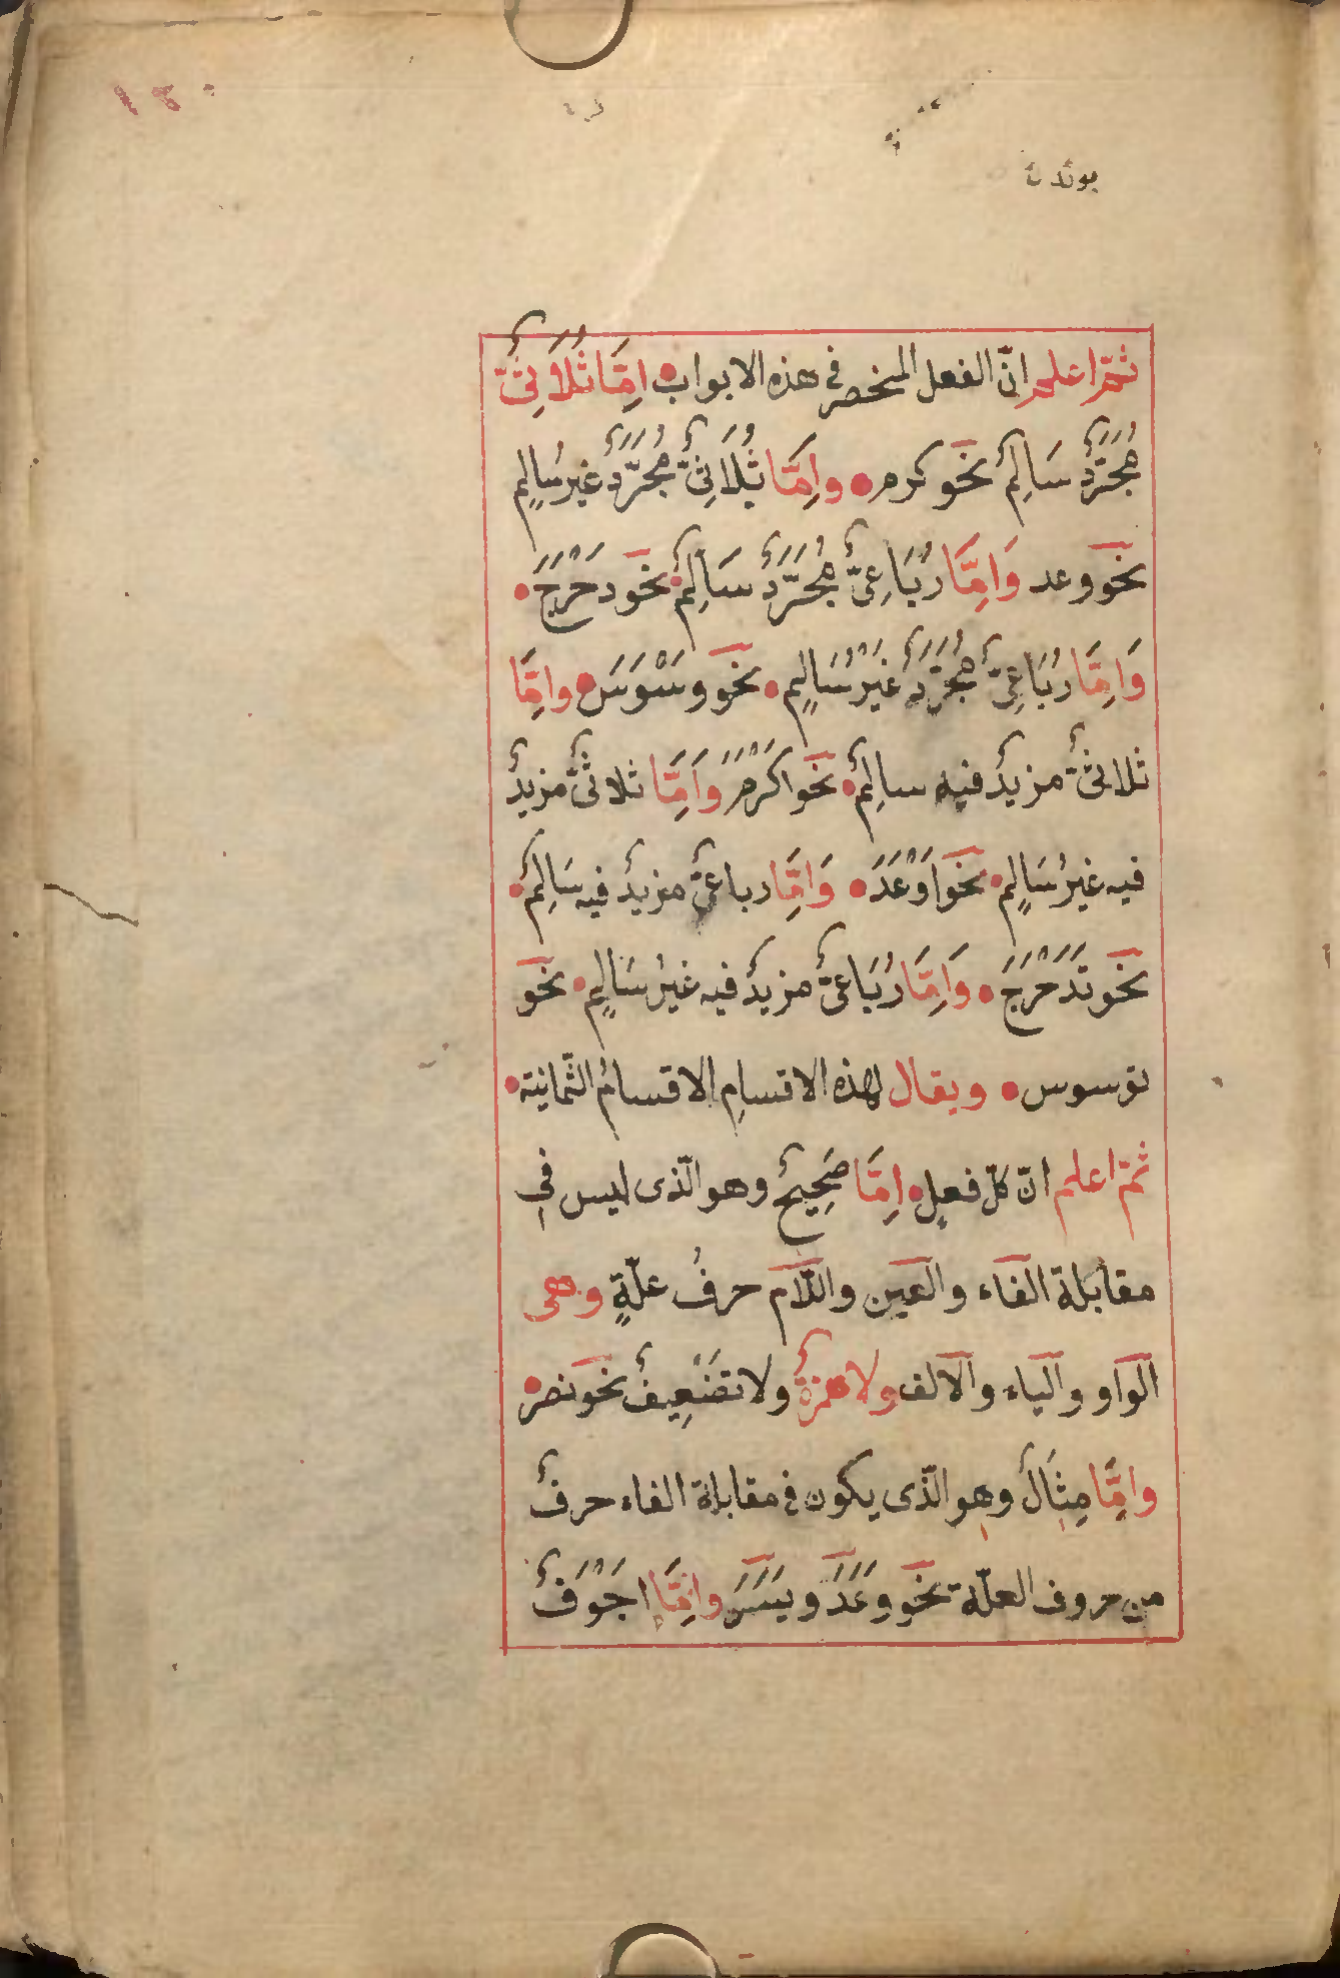 بوندن
ثمّ اعلم انّ الفعل المنحصر فى هذه الابواب اِمَّا ثُلَاثِىٌّ
مُجَرَّدٌ سَالِمٌ نحو كرم وَاِمَّا ثُلَاثِىٌّ مُجَرَّدٌ غيرُ سَالِمٍ
نحو وعد وَاِمَّا رُبَاعِىٌّ مُجَرَّدٌ سَالِمٌ نحو دَحْرَجَ
وَاِمَّا رُبَاعِىٌّ مُجَرَّدٌ غَيْرُ سَالِمٍ نحو وَسْوَسَ واِمَّا
ثلاثىٌّ مزيدٌ فيه سالِمٌ نحو اَكْرَمَ وَاِمَّا ثلاثىٌّ مزيدٌ
فيه غيرُ سَالِمٍ نحو اَوْعَدَ وَاِمَّا رباعىٌّ مزيدٌ فيه سَالِمٌ
نحو تَدَحْرَجَ وَاِمَّا رُبَاعىٌّ مزيدٌ فيه غيرُ سَالِمٍ نحو
توسوس ويقال لهذه الاقسامِ الاقسامُ الثّمانية
ثمّ اعلم انّ كلّ فعلٍ اِمَّا صَحِيحٌ وهو الّذى ليس فى
مقابلة الفاء والعين واللّام حرفُ علّةٍ وهى
الواو والياء والالف ولا همزةٌ ولا تضعِيفٌ نحو نصر
واِمَّا مِثَالٌ وهو الّذى يكون فى مقابلة الفاء حرفٌ
من حروف العلّة نحو وَعَدَ ويَسَرَ واِمَّا اَجْوَفُ